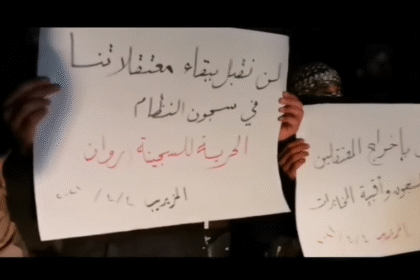 لن نقبل ببقاء معتقلاتنا
في سجون النظام
الحرية للسجينة روان
المزيريب ٤/٤/٢٠٢١
بإخراج المعتقلين
وأقبية المخابرات